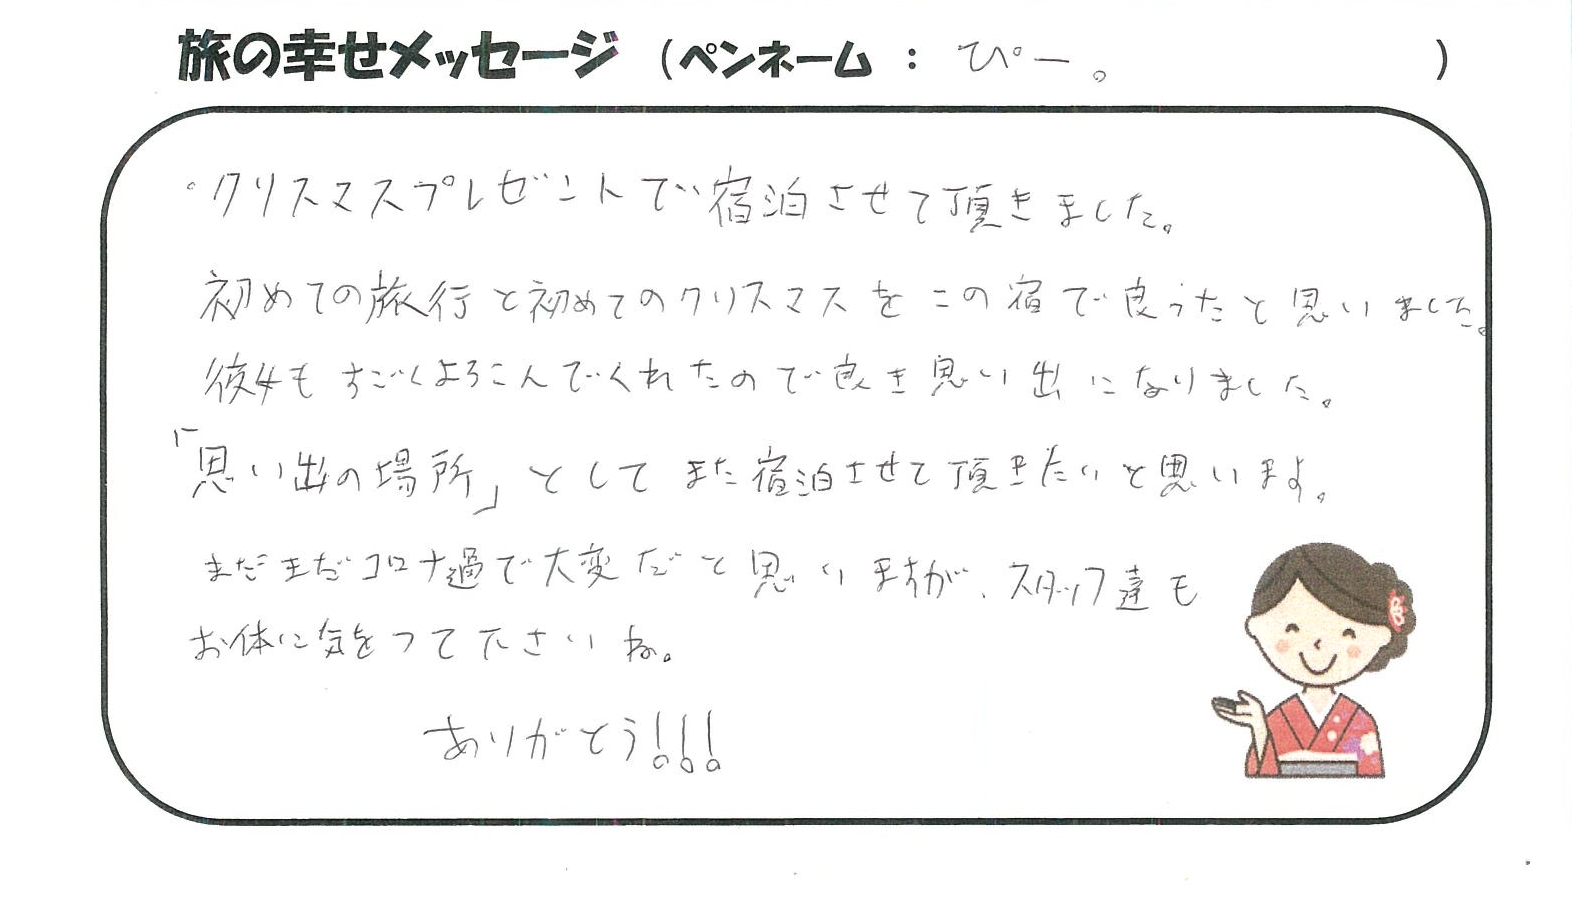 旅の幸せメッセージ (ペンネーム : ぴー。 )
・クリスマスプレゼントで宿泊させて頂きました。
初めての旅行と初めてのクリスマスをこの宿で良かったと思いました。
彼女もすごくよろこんでくれたので良き思い出になりました。
「思い出の場所」としてまた宿泊させて頂きたいと思います。
まだまだコロナ過で大変だと思いますが、スタッフ達も
お体に気をつて下さいね。
ありがとう!!!